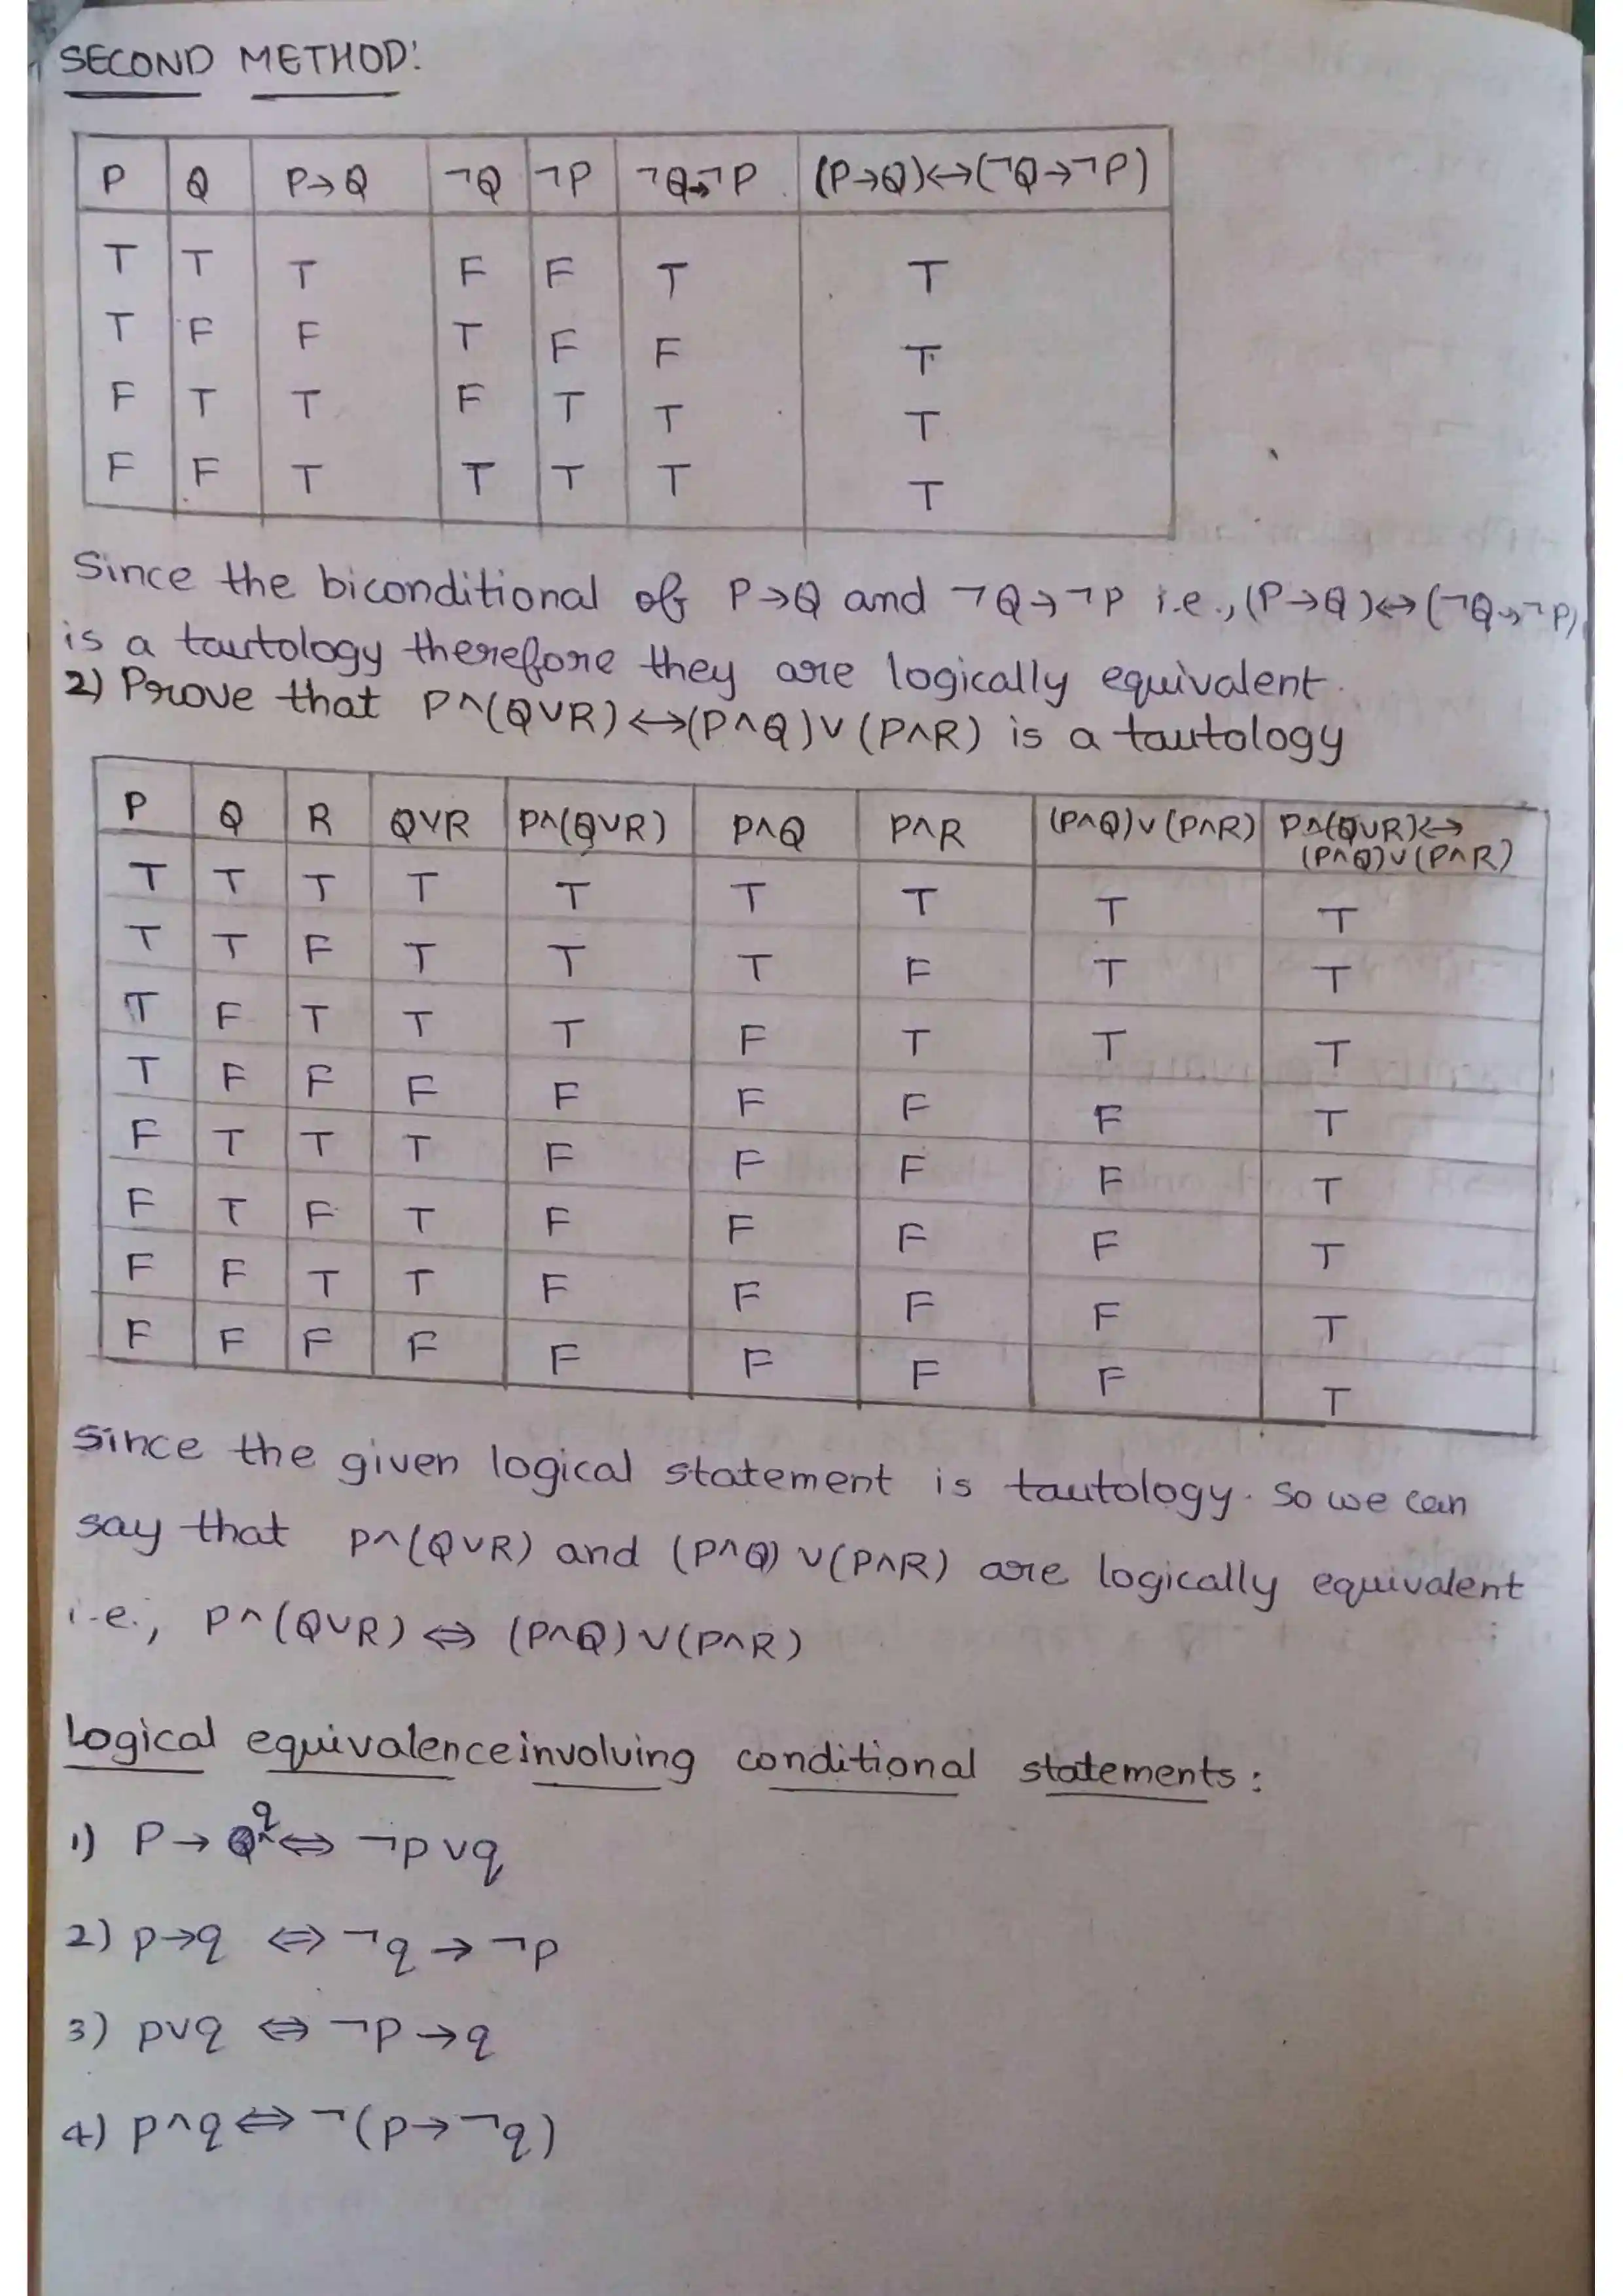 SECOND METHOD:
P Q P→Q ¬Q ¬P ¬Q→¬P (P→Q)↔(¬Q→¬P)
T T T F F T T
T F F T F F T
F T T F T T T
F F T T T T T
Since the biconditional of P→Q and ¬Q→¬P i.e., (P→Q)↔(¬Q→¬P)
is a tautology therefore they are logically equivalent.
2) Prove that P∧(Q∨R)↔(P∧Q)∨(P∧R) is a tautology
P Q R Q∨R P∧(Q∨R) P∧Q P∧R (P∧Q)∨(P∧R) P∧(Q∨R)↔
(P∧Q)∨(P∧R)
T T T T T T T T T
T T F T T T F T T
T F T T T F T T T
T F F F F F F F T
F T T T F F F F T
F T F T F F F F T
F F T T F F F F T
F F F F F F F F T
Since the given logical statement is tautology. So we can
say that P∧(Q∨R) and (P∧Q)∨(P∧R) are logically equivalent
i.e., P∧(Q∨R) ⇔ (P∧Q)∨(P∧R)
Logical equivalence involving conditional statements:
1) P→q ⇔ ¬p∨q
2) p→q ⇔ ¬q→¬p
3) p∨q ⇔ ¬p→q
4) p∧q ⇔ ¬(p→¬q)